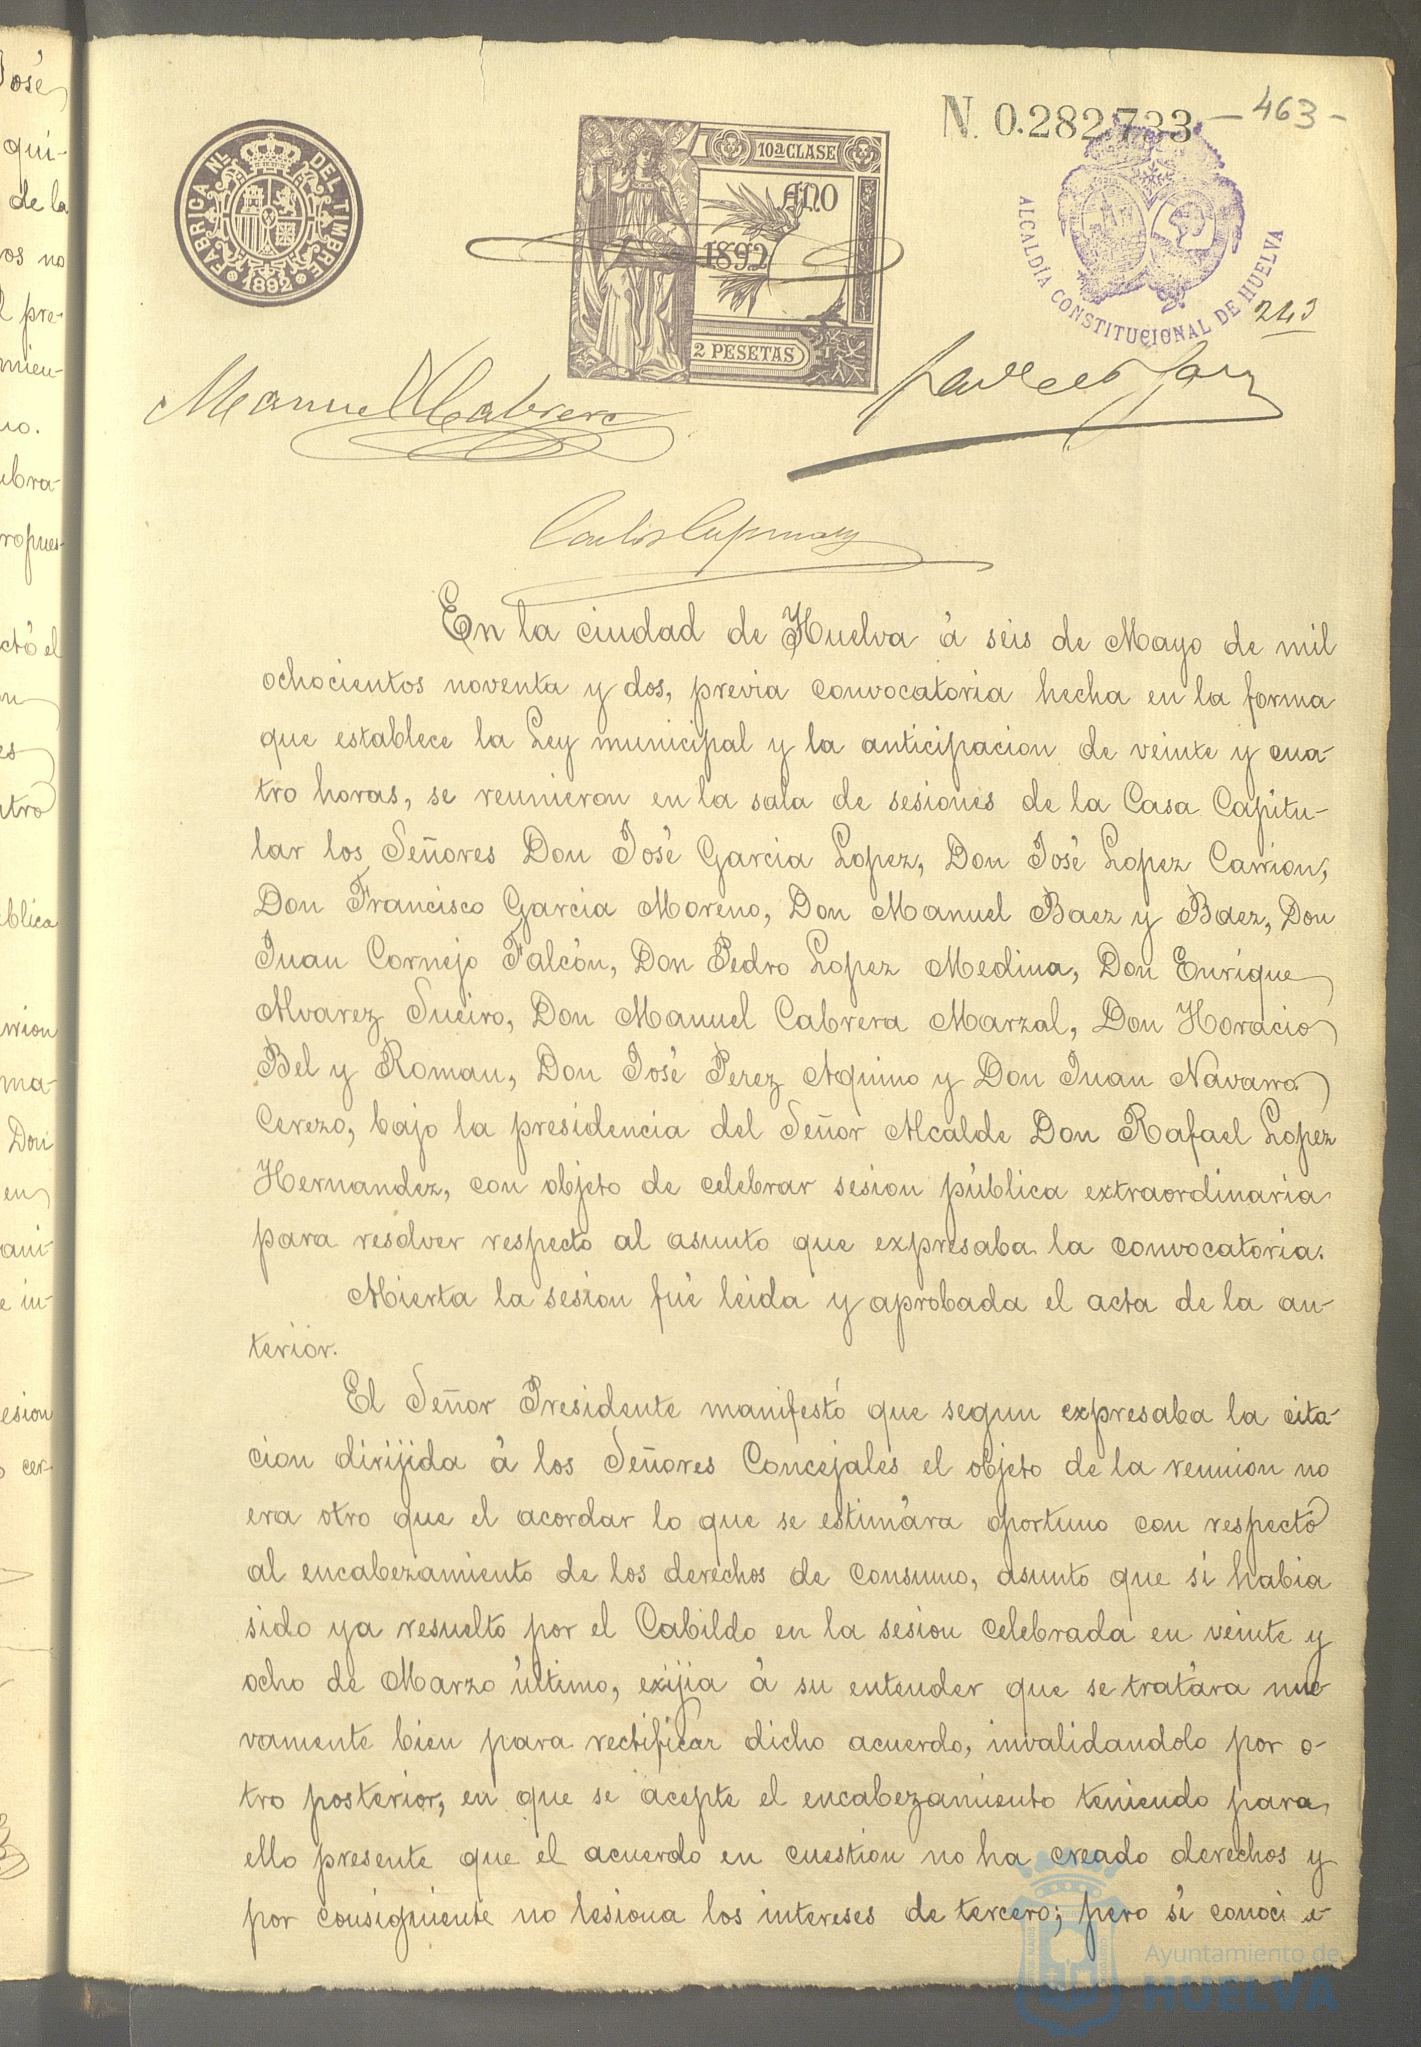 José
qui-
de la
os no
l pre-
mien-
no.
mbra-
ropues-
ctó el
n
es
ntro
ública
rrion
ma-
Don
en
ani-
e in-
esion
cer-
N. 0.282,733 — 463 -
FABRICA NL. DEL TIMBRE
1892
10ª CLASE
AÑO
1892
2 PESETAS
ALCALDÍA CONSTITUCIONAL DE HUELVA
243
Manuel Cabrera
En la ciudad de Huelva á seis de Mayo de mil
ochocientos noventa y dos, previa convocatoria hecha en la forma
que establece la Ley municipal y la anticipacion de veinte y cua-
tro horas, se reunieron en la sala de sesiones de la Casa Capitu-
lar los Señores Don José Garcia Lopez, Don José Lopez Carrion,
Don Francisco Garcia Moreno, Don Manuel Baez y Baez, Don
Juan Cornejo Falcón, Don Pedro Lopez Medina, Don Enrique
Alvarez Sueiro, Don Manuel Cabrera Marzal, Don Horacio
Bel y Roman, Don José Perez Aquino y Don Juan Navarro
Cerezo, bajo la presidencia del Señor Alcalde Don Rafael Lopez
Hernandez, con objeto de celebrar sesion pública extraordinaria
para resolver respecto al asunto que expresaba la convocatoria.
Abierta la sesion fué leida y aprobada el acta de la an-
terior.
El Señor Presidente manifestó que segun expresaba la cita-
cion dirijida á los Señores Concejales el objeto de la reunion no
era otro que el acordar lo que se estimára oportuno con respecto
al encabezamiento de los derechos de consumo, asunto que si habia
sido ya resuelto por el Cabildo en la sesion celebrada en veinte y
ocho de Marzo último, exijia á su entender que se tratára nue-
vamente bien para rectificar dicho acuerdo, invalidandolo por o-
tro posterior, en que se acepte el encabezamiento teniendo para
ello presente que el acuerdo en cuestion no ha creado derechos y
por consiguiente no lesiona los intereses de tercero; pero si conoci e-
Ayuntamiento de
HUELVA